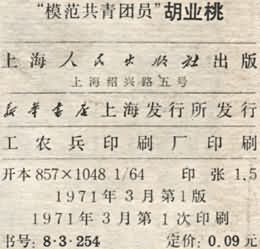 “模范共青团员”胡业桃
上海人民出版社出版
上海绍兴路五号
新华书店上海发行所发行
工农兵印刷厂印刷
开本 857×1048 1/64 印张 1.5
1971年3月第1版
1971年3月第1次印刷
书号：8·3·254 定价：0.09元